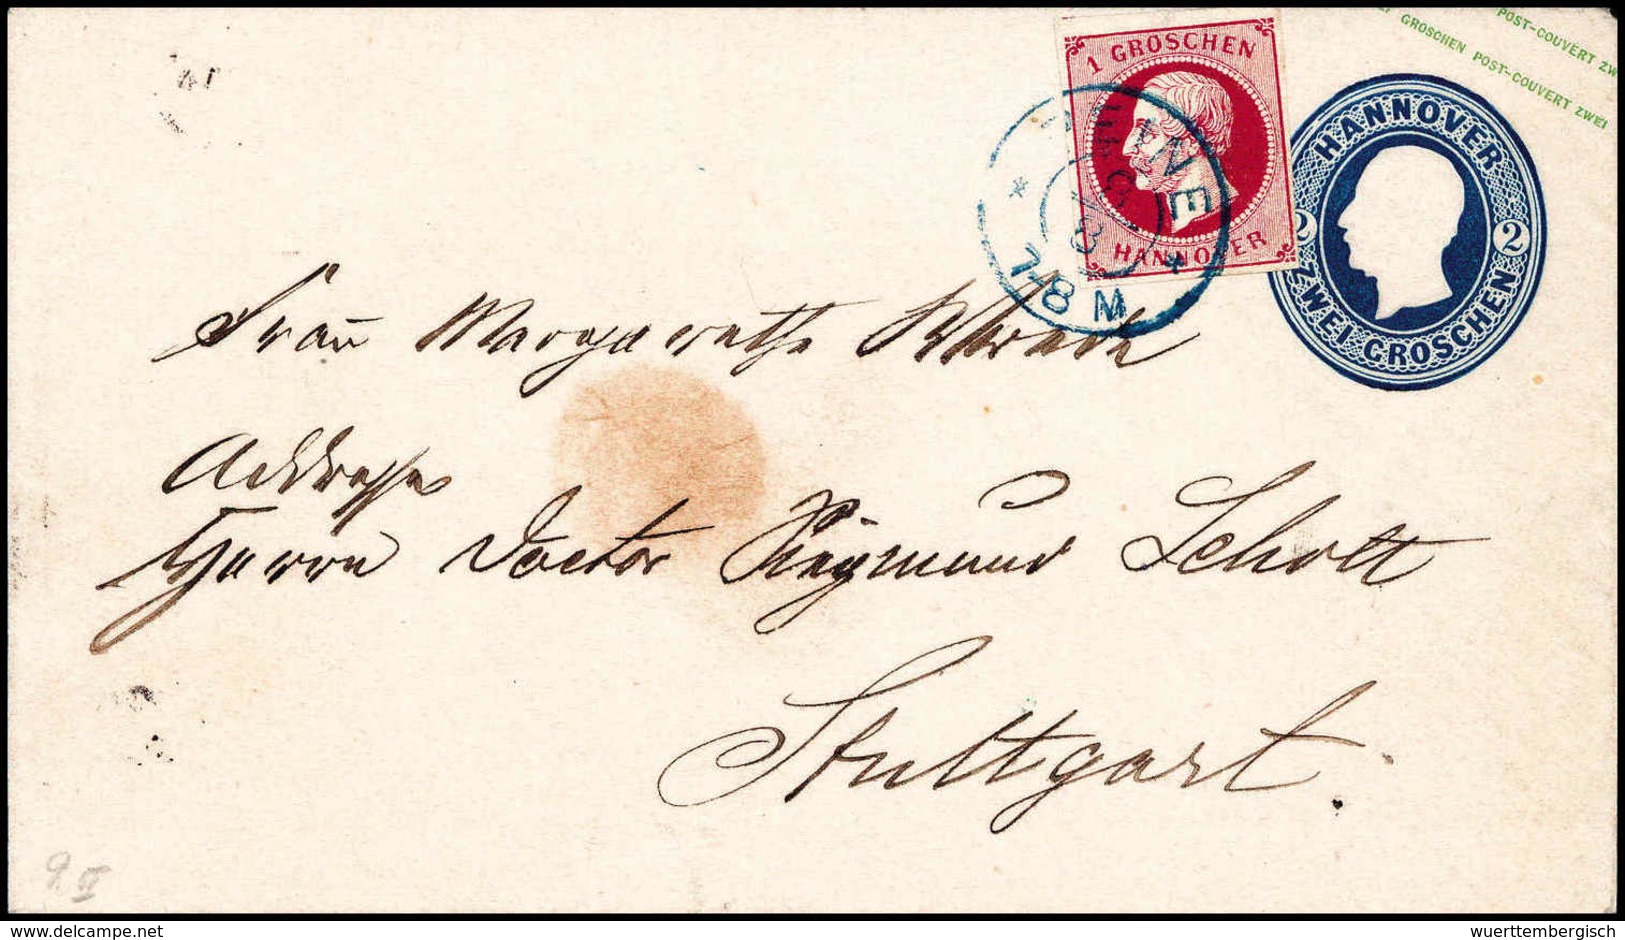 POST-COUVERT ZW
GROSCHEN POST-COUVERT ZWEI
1 GROSCHEN
HANNOVER
HANNOVER
2 2
ZWEI GROSCHEN
* *
7-8 M
Frau Margarethe
Addresse
Herrn Doctor Siegmund Schott
Stuttgart.
9. II
delcampe.net
wuerttembergisch